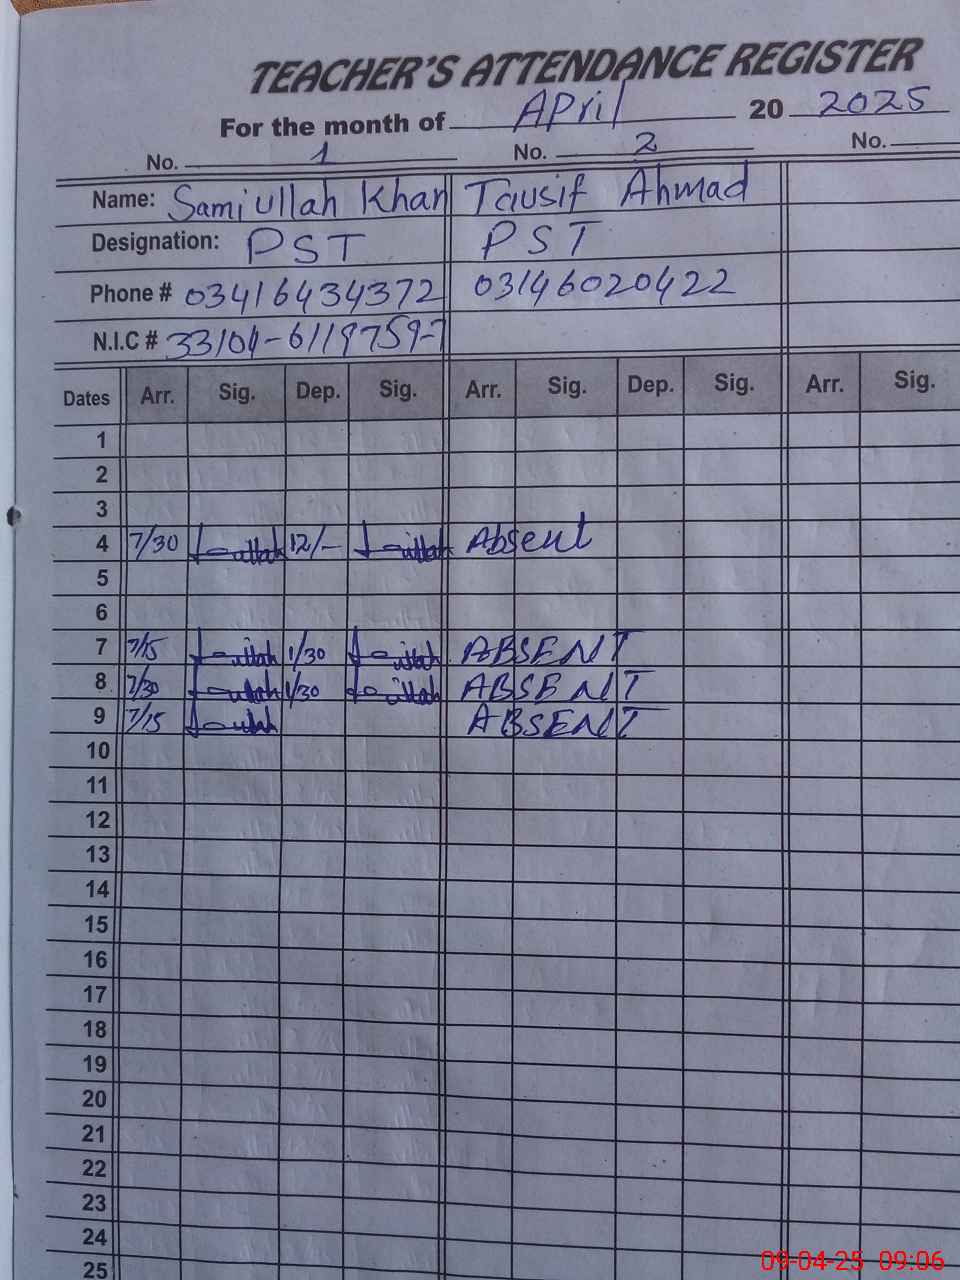 TEACHER'S ATTENDANCE REGISTER
For the month of April 20 2025
No. 1 No. 2 No.
Name: Samiullah Khan Tausif Ahmad
Designation: PST PST
Phone # 03416434372 03146020422
N.I.C # 33104-6119759-7
Dates Arr. Sig. Dep. Sig. Arr. Sig. Dep. Sig. Arr. Sig.
1
2
3
4 7/30 12/- Absent
5
6
7 7/15 1/30 ABSENT
8 7/30 1/30 ABSENT
9 7/15 ABSENT
10
11
12
13
14
15
16
17
18
19
20
21
22
23
24
25
09-04-25 09:06